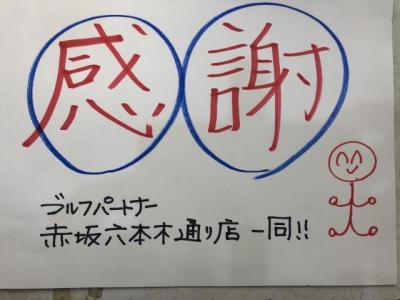 感謝
ゴルフパートナー
赤坂六本木通り店 一同!!